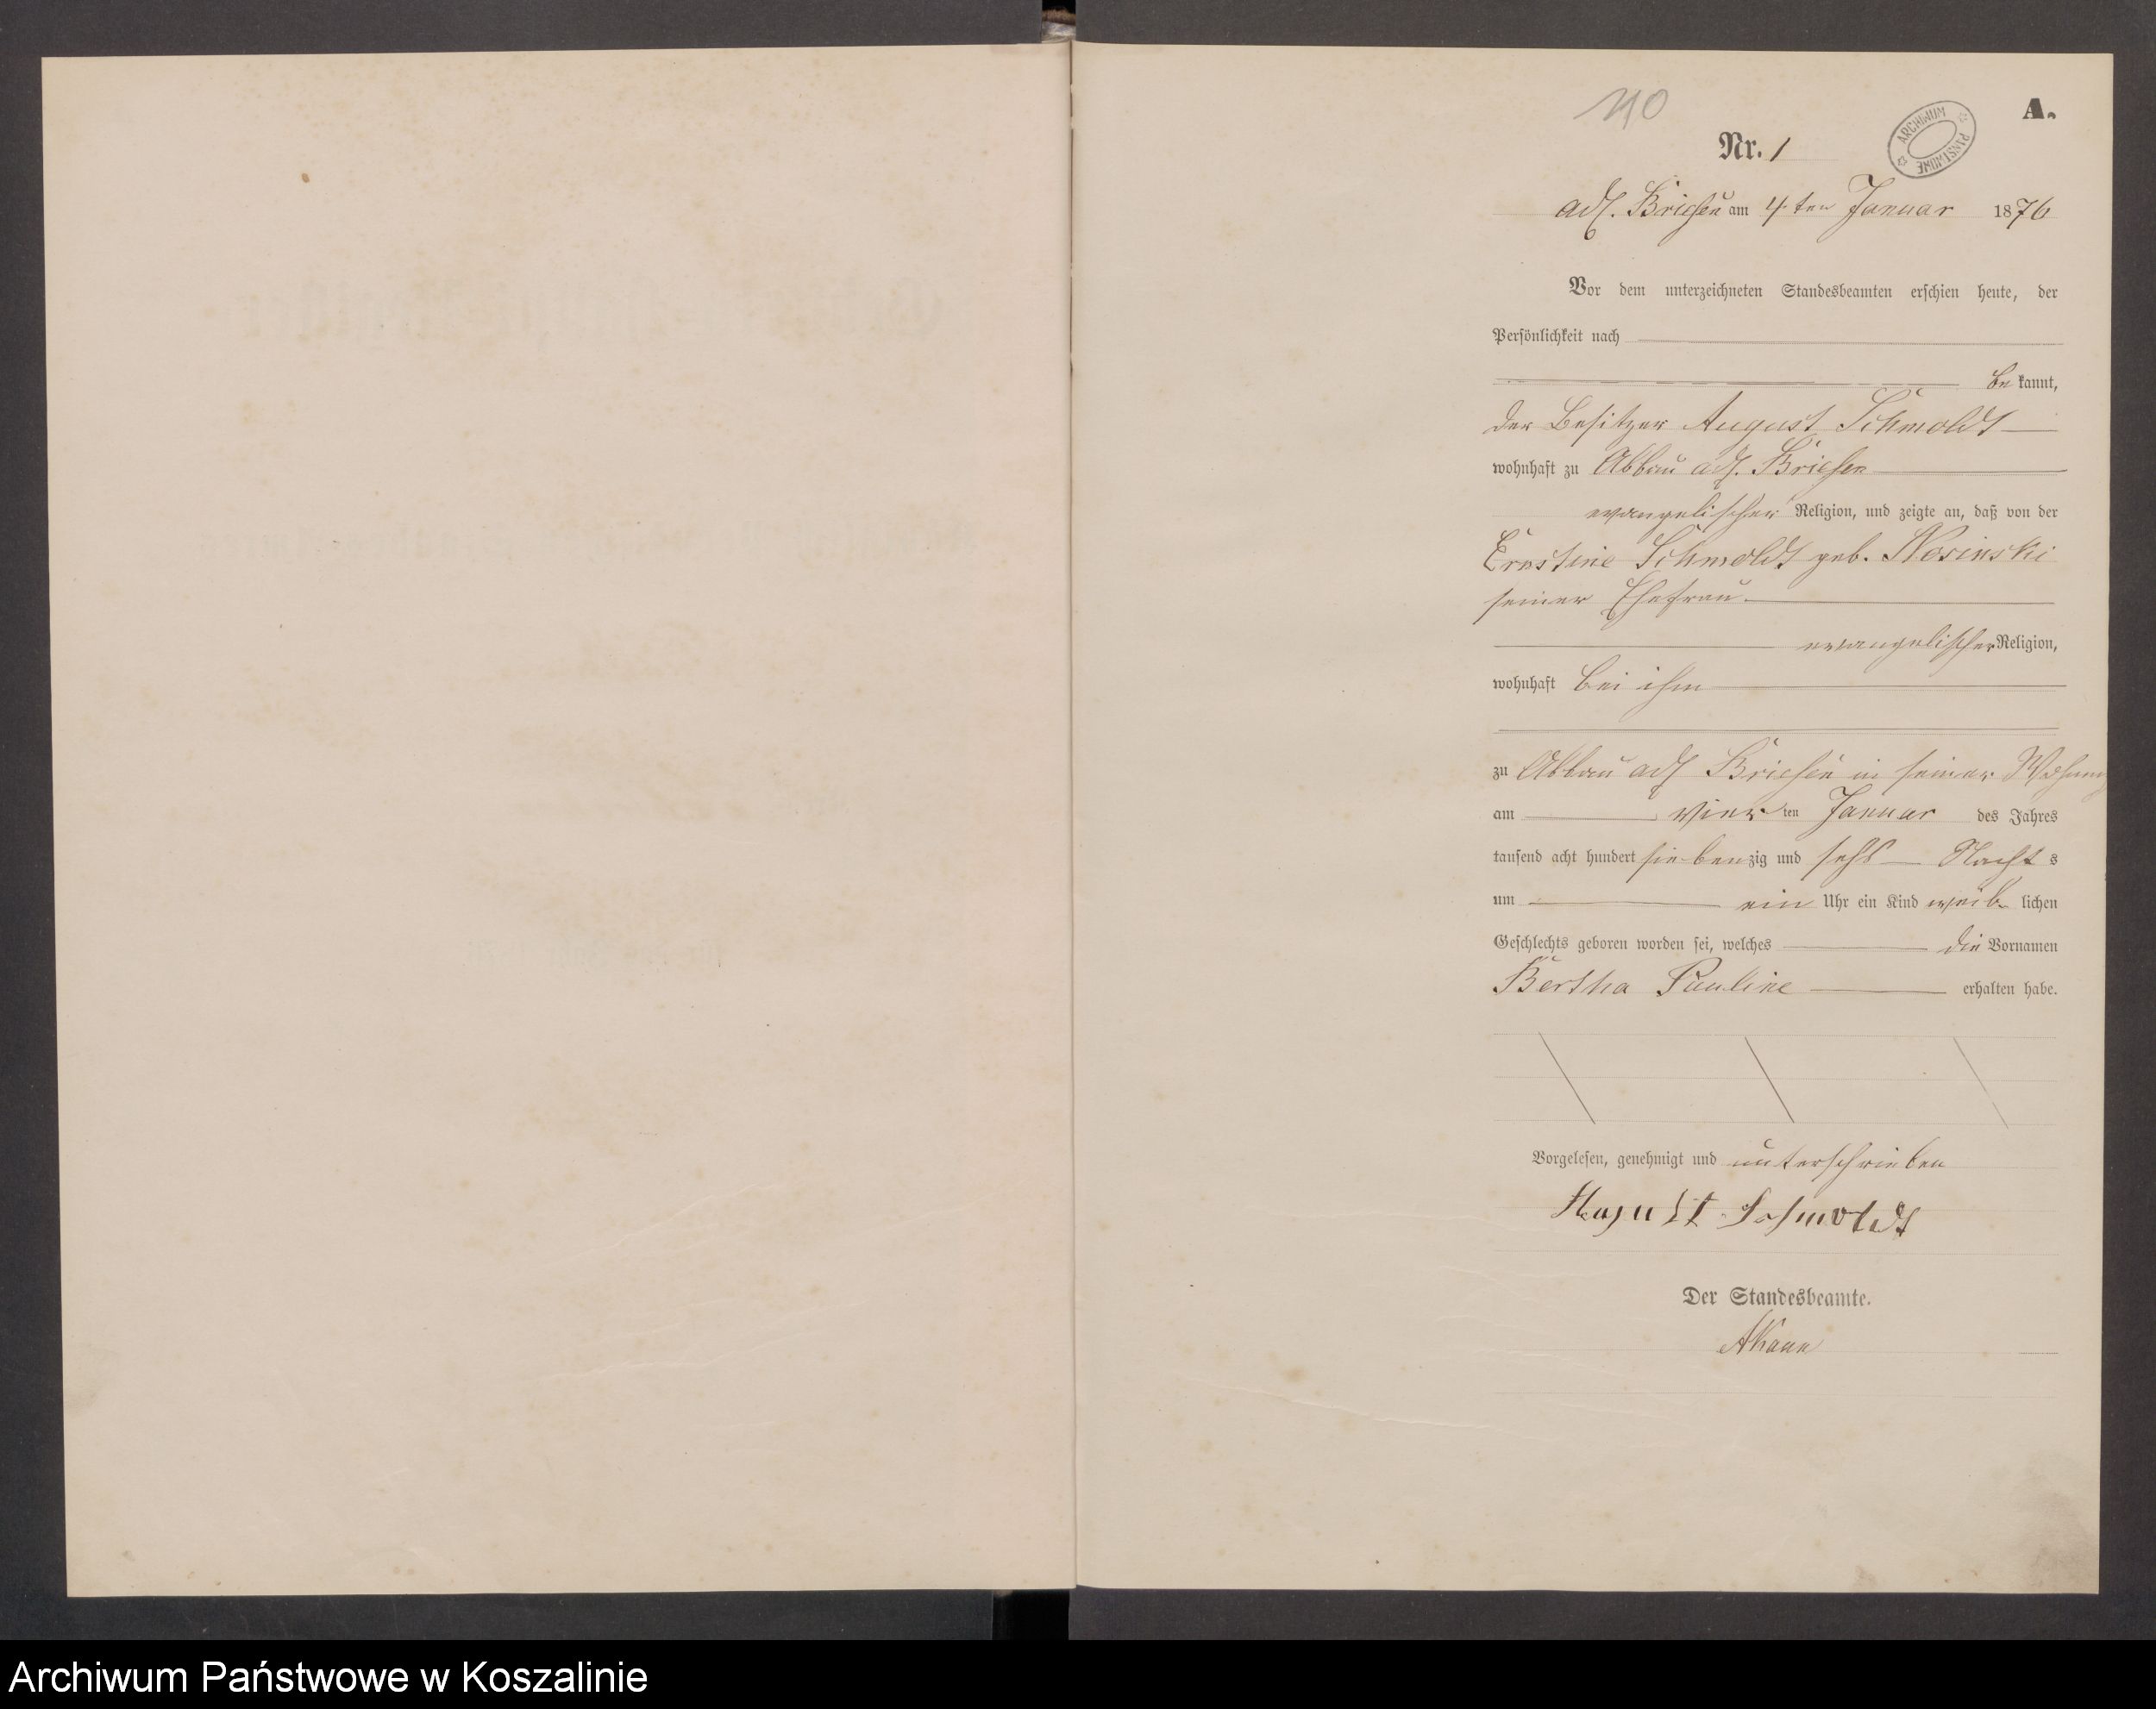 A.
Nr. 1
ARCHIWUM PAŃSTWOWE
adl. Briesen am 4ten Januar 1876
Vor dem unterzeichneten Standesbeamten erschien heute, der
Persönlichkeit nach
be kannt,
der Besitzer August Schmoldt
wohnhaft zu Abbau adl. Briesen
evangelischer Religion, und zeigte an, daß von der
Ernstine Schmoldt geb. Nosinski
seiner Ehefrau
evangelischer Religion,
wohnhaft bei ihm
zu Abbau adl Briesen in seiner Wohnung
am vier ten Januar des Jahres
tausend acht hundert siebenzig und sechs Nacht s
um ein Uhr ein Kind weib lichen
Geschlechts geboren worden sei, welches die Vornamen
Bertha Pauline erhalten habe.
Vorgelesen, genehmigt und unterschrieben
August Schmoldt
Der Standesbeamte.
Archiwum Państwowe w Koszalinie